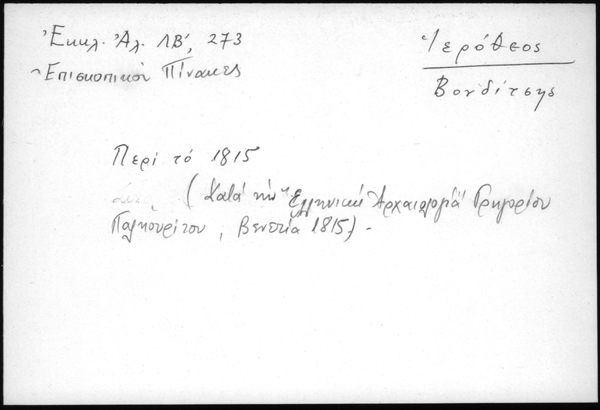 Ἐκκλ. Ἀλ. ΛΒ', 273
Ἐπισκοπικοὶ Πίνακες
Ἱερόθεος
Βονδίτσης
Περὶ τὸ 1815
(Κατὰ τὴν Ἑλληνικὴ Ἀρχαιολογία Γρηγορίου
Παλιουρίτου, Βενετία 1815) -